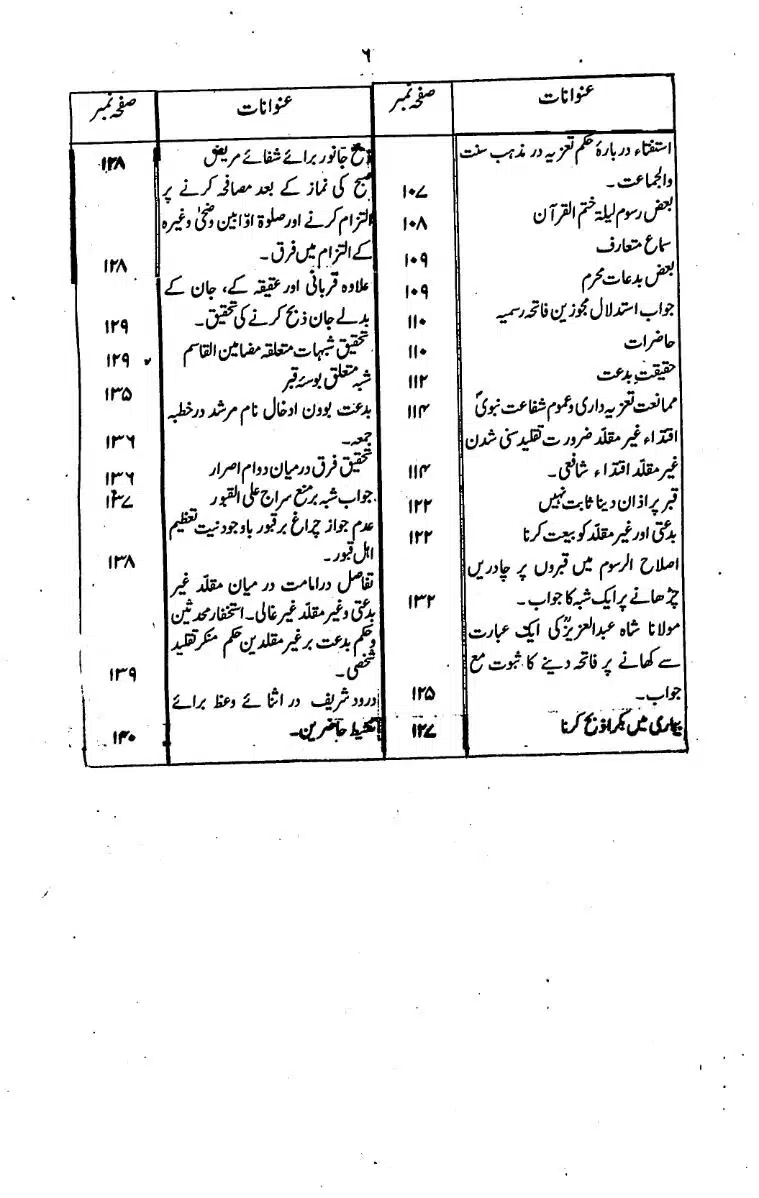 ۶
عنوانات صفحہ نمبر
استفتاء دربارۂ حکم تعزیہ در مذہب سنت
والجماعت۔ ۱۰۷
بعض رسوم لیلۃ ختم القرآن ۱۰۸
سماع متعارف ۱۰۹
بعض بدعات محرم ۱۰۹
جواب استدلال مجوزین فاتحہ رسمیہ ۱۱۰
حاضرات ۱۱۰
حقیقت بدعت ۱۱۲
ممانعت تعزیہ داری و عموم شفاعت نبویؐ ۱۱۴
اقتداء غیر مقلد ضرورت تقلید سنی شدن
غیر مقلد اقتداء شافعی۔ ۱۱۴
قبر پر اذان دینا ثابت نہیں ۱۲۲
بدعتی اور غیر مقلد کو بیعت کرنا ۱۲۲
اصلاح الرسوم میں قبروں پر چادریں
چڑھانے پر ایک شبہ کا جواب۔ ۱۳۲
مولانا شاہ عبدالعزیزؒ کی ایک عبارت
سے کھانے پر فاتحہ دینے کا ثبوت مع
جواب۔ ۱۲۵
بیماری میں بکرا ذبح کرنا ۱۲۷
عنوانات صفحہ نمبر
ذبح جانور برائے شفائے مریض ۱۲۸
صبح کی نماز کے بعد مصافحہ کرنے پر
التزام کرنے اور صلوٰۃ اوّابین وضحیٰ وغیرہ
کے التزام میں فرق۔ ۱۲۸
علاوہ قربانی اور عقیقہ کے، جان کے
بدلے جان ذبح کرنے کی تحقیق۔ ۱۲۹
تحقیق شبہات متعلقہ مضامین القاسم ۱۲۹
شبہ متعلق بوسۂ قبر ۱۳۵
بدعت بودن ادخال نام مرشد در خطبہ
جمعہ۔ ۱۳۶
تحقیق فرق درمیان دوام اصرار ۱۳۶
جواب شبہ بر منع سراج علی القبور ۱۳۷
عدم جواز چراغ بر قبور باوجود نیت تعظیم
اہل قبور۔ ۱۳۸
تفاضل در امامت در میان مقلد غیر
بدعتی وغیر مقلد غیر غالی۔ استخفار محدثین
وحکم بدعت بر غیر مقلدین حکم منکر تقلید
شخصی۔ ۱۳۹
درود شریف در اثنائے وعظ برائے
تنشیط حاضرین۔ ۱۴۰